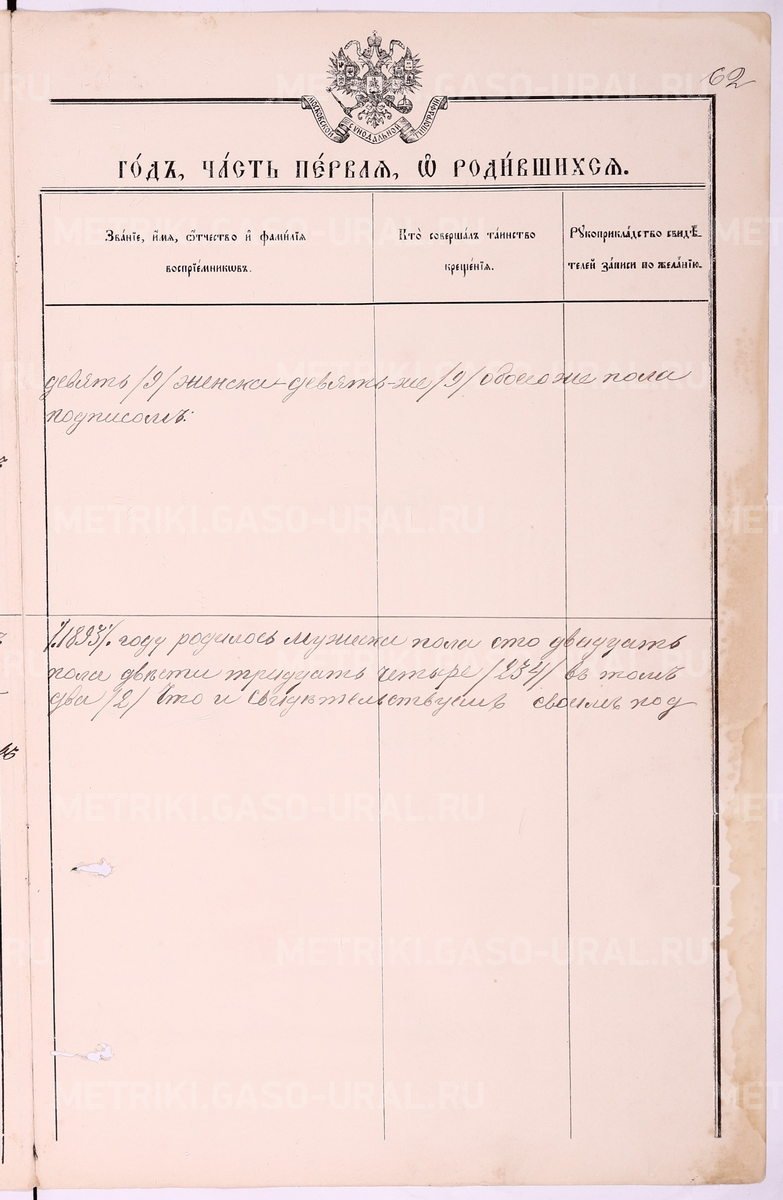 62
МОСКОВСКОЙ СѴНОДАЛЬНОЙ ТИПОГРАФІИ
ГО́ДЪ, ЧА́СТЬ ПЕ́РВАЯ, Ѽ РОДИ́ВШИХСЯ.
Зва́нїе, и҆́мя, ѻ҆́тчество и҆ фамѝлїя
воспрїе́мникѡвъ.
Кто̀ совершалъ та́инство
креще́нїя.
Рꙋкоприкла́дство свидѣ-
телей за́писи по жела́нїю.
девять /9/ женска - девять-же /9/ обоего же пола
подписомъ:
1893 году родилось мужеска пола сто двадцать
пола двѣсти тридцать четыре /234/ въ томъ
два /2/ Что и свидѣтельствуемъ своимъ под
METRIKI.GASO-URAL.RU